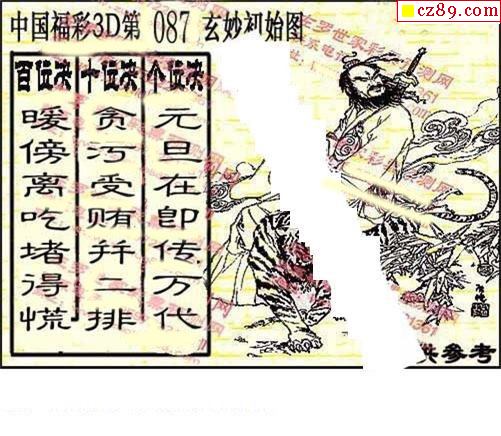 cz89.com
中国福彩3D第 087 玄妙初始图
百位决 十位决 个位决
暖傍离吃堵得慌
贪污受贿并二排
元旦在即传万代
供参考